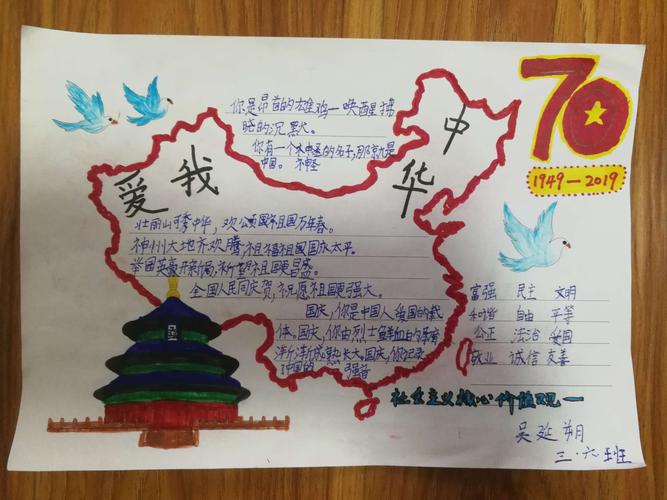 你是昂首的雄鸡一唤醒拂
晓的沉默。
你有一个不
中国。
70
1949—2019
爱我
中华
壮丽山河秀中华,欢公颂国祖国万年春。
神州大地齐欢腾祖福祖国国庆太平。
举国英豪开新局,祈望祖国更昌盛。
全国人民同庆贺,祝愿祖国更强大。
国庆,你是中国人爱国的载
体。国庆,你由烈士鲜血白
渐渐成熟长大。国庆,你记录
了中国的 强音
富强 民主 文明
和谐 自由 平等
公正 法治 爱国
敬业 诚信 友善
社会主义核心价值观一
吴延朔
三.六班